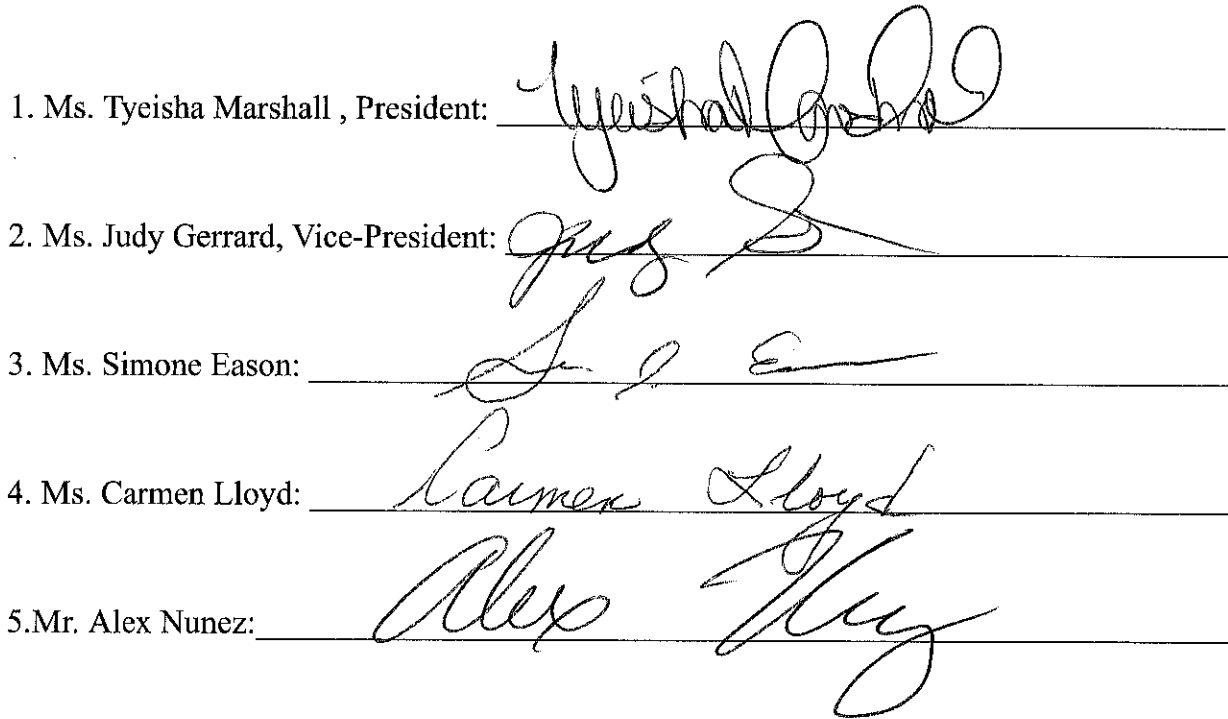 1. Ms. Tyeisha Marshall , President: Tyeisha Marshall
2. Ms. Judy Gerrard, Vice-President: Judy
3. Ms. Simone Eason:
4. Ms. Carmen Lloyd: Carmen Lloyd
5.Mr. Alex Nunez: Alex